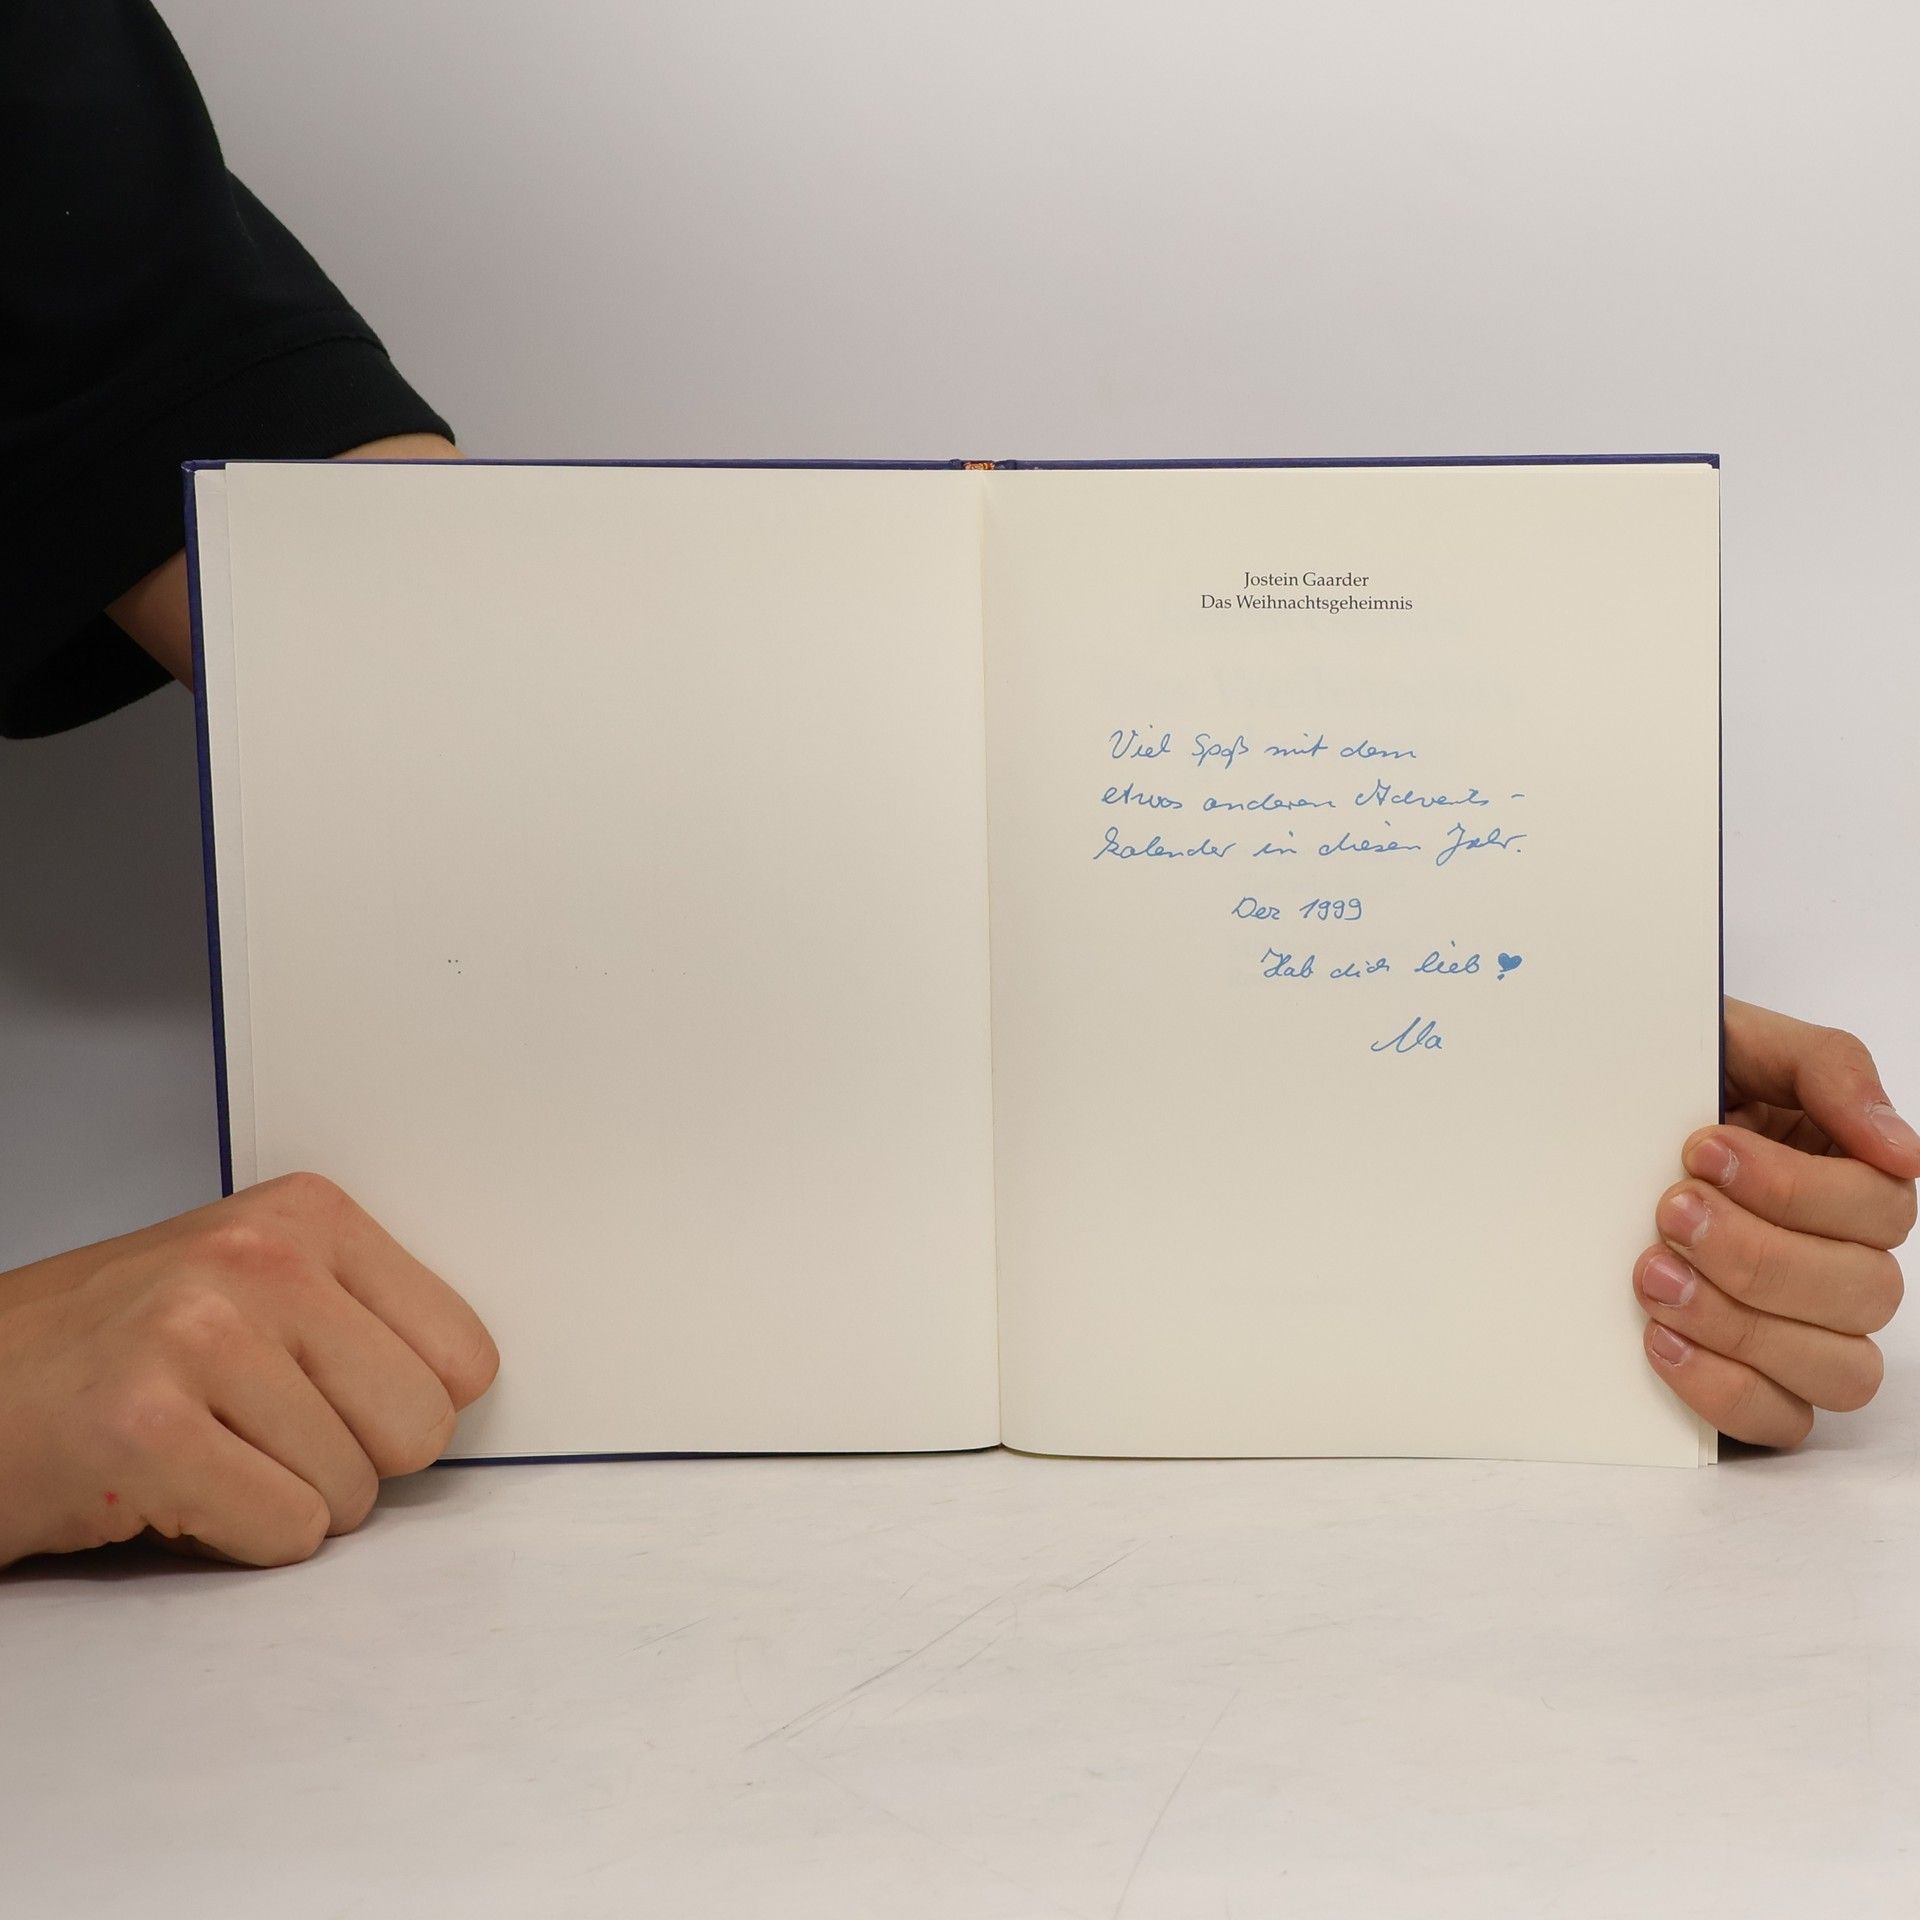 Jostein Gaarder
Das Weihnachtsgeheimnis
Viel Spaß mit dem
etwas anderen Advents-
kalender in diesem Jahr.
Dez 1999
Hab dich lieb ♥
Ma